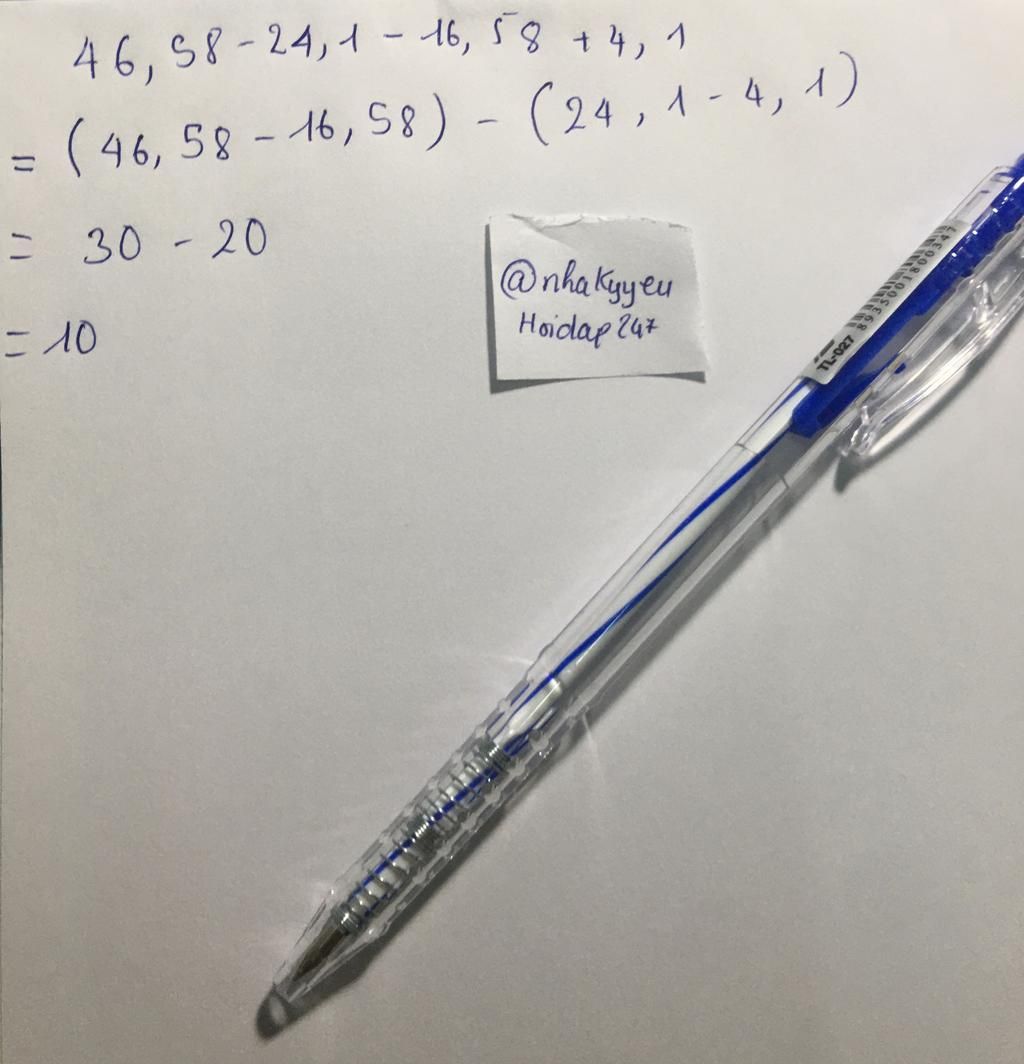 46,58 - 24,1 - 16,58 + 4,1
= (46,58 - 16,58) - (24,1 - 4,1)
= 30 - 20
= 10
@nhakyyeu
Hoidap247
TL-027
8935001800347